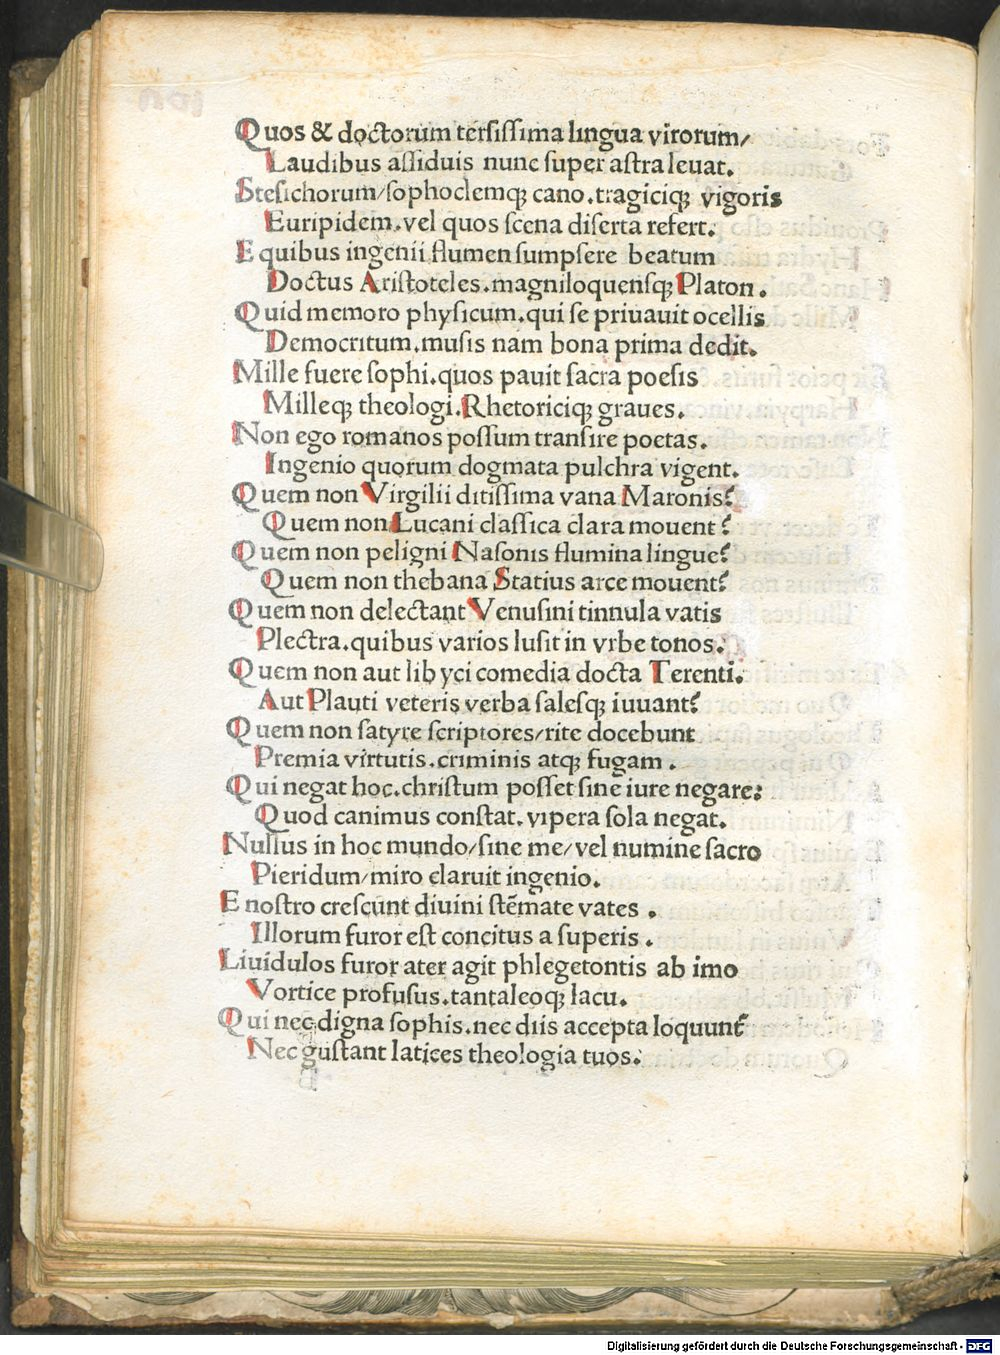 Quos & doctorum tersissima lingua virorum/
Laudibus assiduis nunc super astra leuat.
Stesichorum/sophoclemqꝫ cano.tragiciqꝫ vigoris
Euripidem.vel quos scena diserta refert.
E quibus ingenii flumen sumpsere beatum
Doctus Aristoteles.magniloquensqꝫ Platon.
Quid memoro physicum.qui se priuauit ocellis
Democritum.musis nam bona prima dedit.
Mille fuere sophi.quos pauit sacra poesis
Milleqꝫ theologi.Rhetoriciqꝫ graues.
Non ego romanos possum transire poetas.
Ingenio quorum dogmata pulchra vigent.
Quem non Virgilii ditissima vana Maronis?
Quem non Lucani classica clara mouent?
Quem non peligni Nasonis flumina lingue?
Quem non thebana Statius arce mouent?
Quem non delectant Venusini tinnula vatis
Plectra.quibus varios lusit in vrbe tonos:
Quem non aut libyci comedia docta Terenti.
Aut Plauti veteris verba salesqꝫ iuuant?
Quem non satyre scriptores/rite docebunt
Premia virtutis.criminis atqꝫ fugam.
Qui negat hoc.christum posset sine iure negare:
Quod canimus constat.vipera sola negat.
Nullus in hoc mundo/sine me/vel numine sacro
Pieridum/miro claruit ingenio.
E nostro crescunt diuini stēmate vates.
Illorum furor est concitus a superis.
Liuidulos furor ater agit phlegetontis ab imo
Vortice profusus.tantaleoqꝫ lacu.
Qui nec digna sophis.nec diis accepta loquunt᷑
Nec gustant latices theologia tuos:
Digitalisierung gefördert durch die Deutsche Forschungsgemeinschaft - DFG